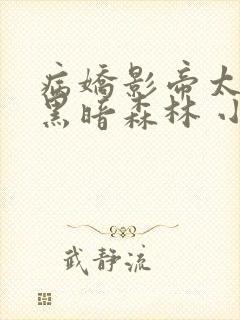 病嬌影帝太
黑暗森林 小
武静流